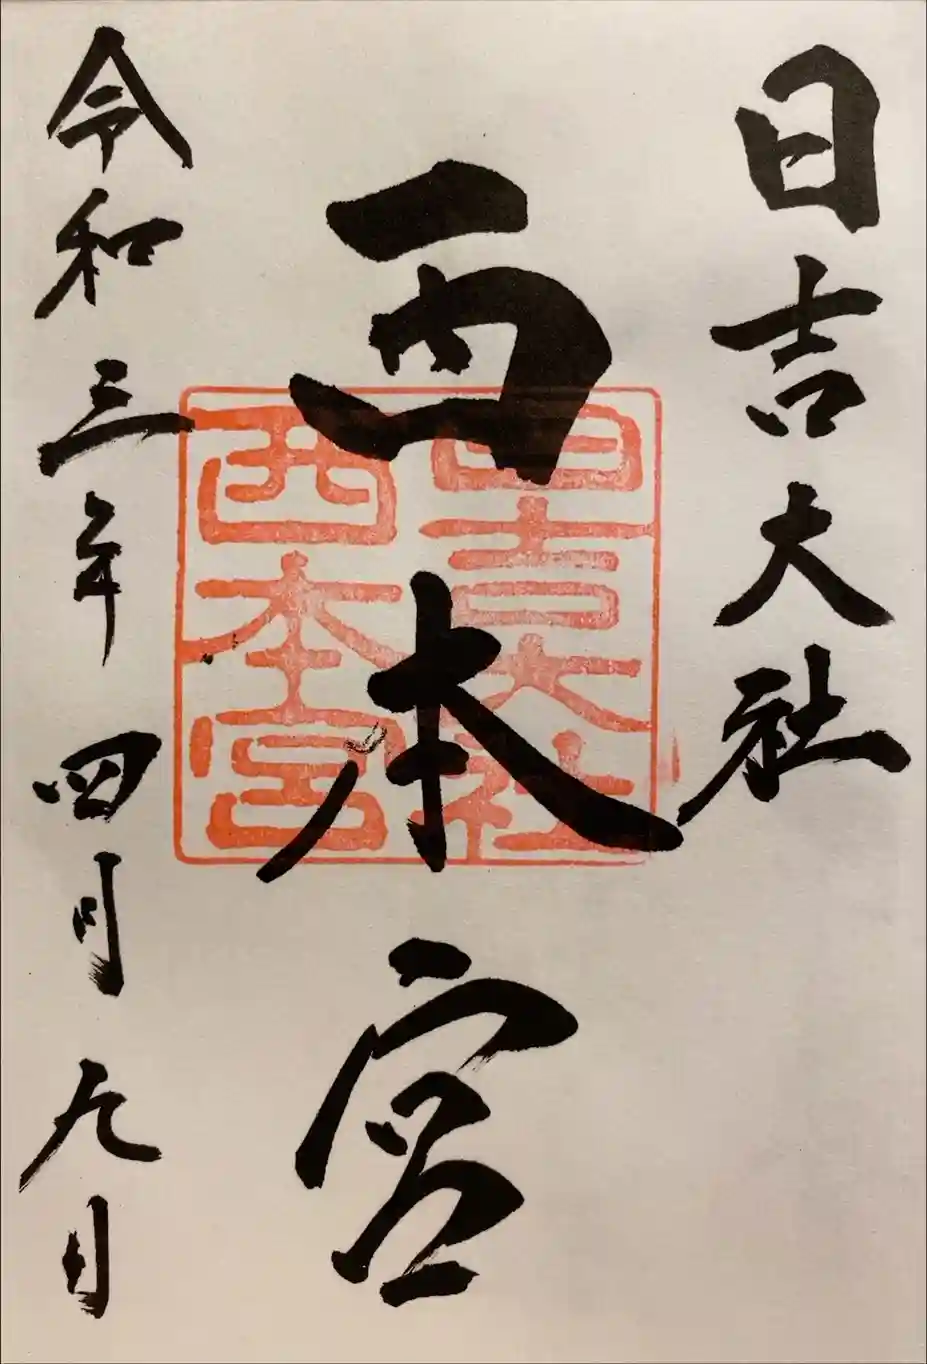 日吉大社
西本宮
日吉大社
西本宮
令和三年四月九日